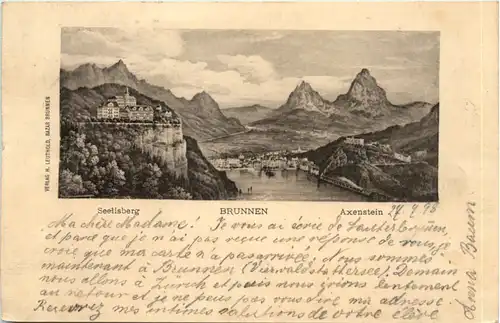 VERLAG H. LEUTHOLD, BAZAR BRUNNEN
Seelisberg BRUNNEN Axenstein
Ma chère Madame! Je vous ai écrie de
et parce que je n'ai pas reçue une réponse de vous, je
croie que ma carte n'a pas arrivée, et nous sommes
maintenant à Brunnen (Vierwaldstättersee). Demain
nous allons à Zurich et puis nous irons lentement
au retour et je ne peux pas vous dire ma adresse.
Recevrez mes intimes salutations de votre élève
Anna Bacon.